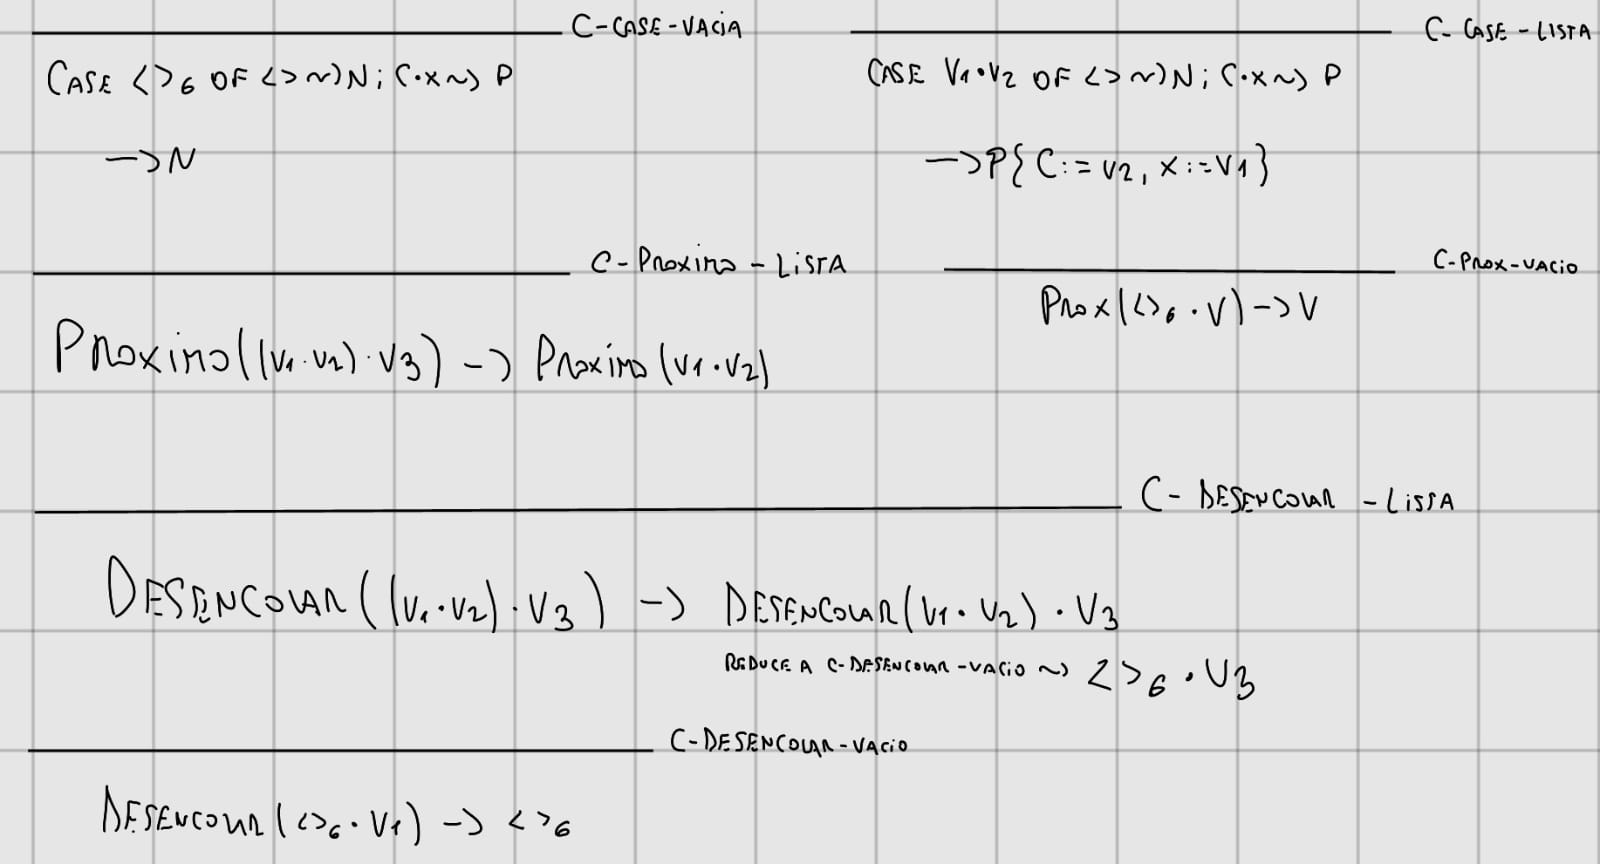 C-CASE-VACIA
C-CASE-LISTA
CASE <>6 OF <> ~> N; C·X ~> P
CASE V1·V2 OF <> ~> N; C·X ~> P
-> N
-> P{C:=V2, X:=V1}
C-PROXIMO-LISTA
C-PROX-VACIO
PROXIMO((V1·V2)·V3) -> PROXIMO(V1·V2)
PROX(<>6·V) -> V
C-DESENCOLAR-LISTA
DESENCOLAR((V1·V2)·V3) -> DESENCOLAR(V1·V2)·V3
REDUCE A C-DESENCOLAR-VACIO ~> <>6·V3
C-DESENCOLAR-VACIO
DESENCOLAR(<>6·V1) -> <>6